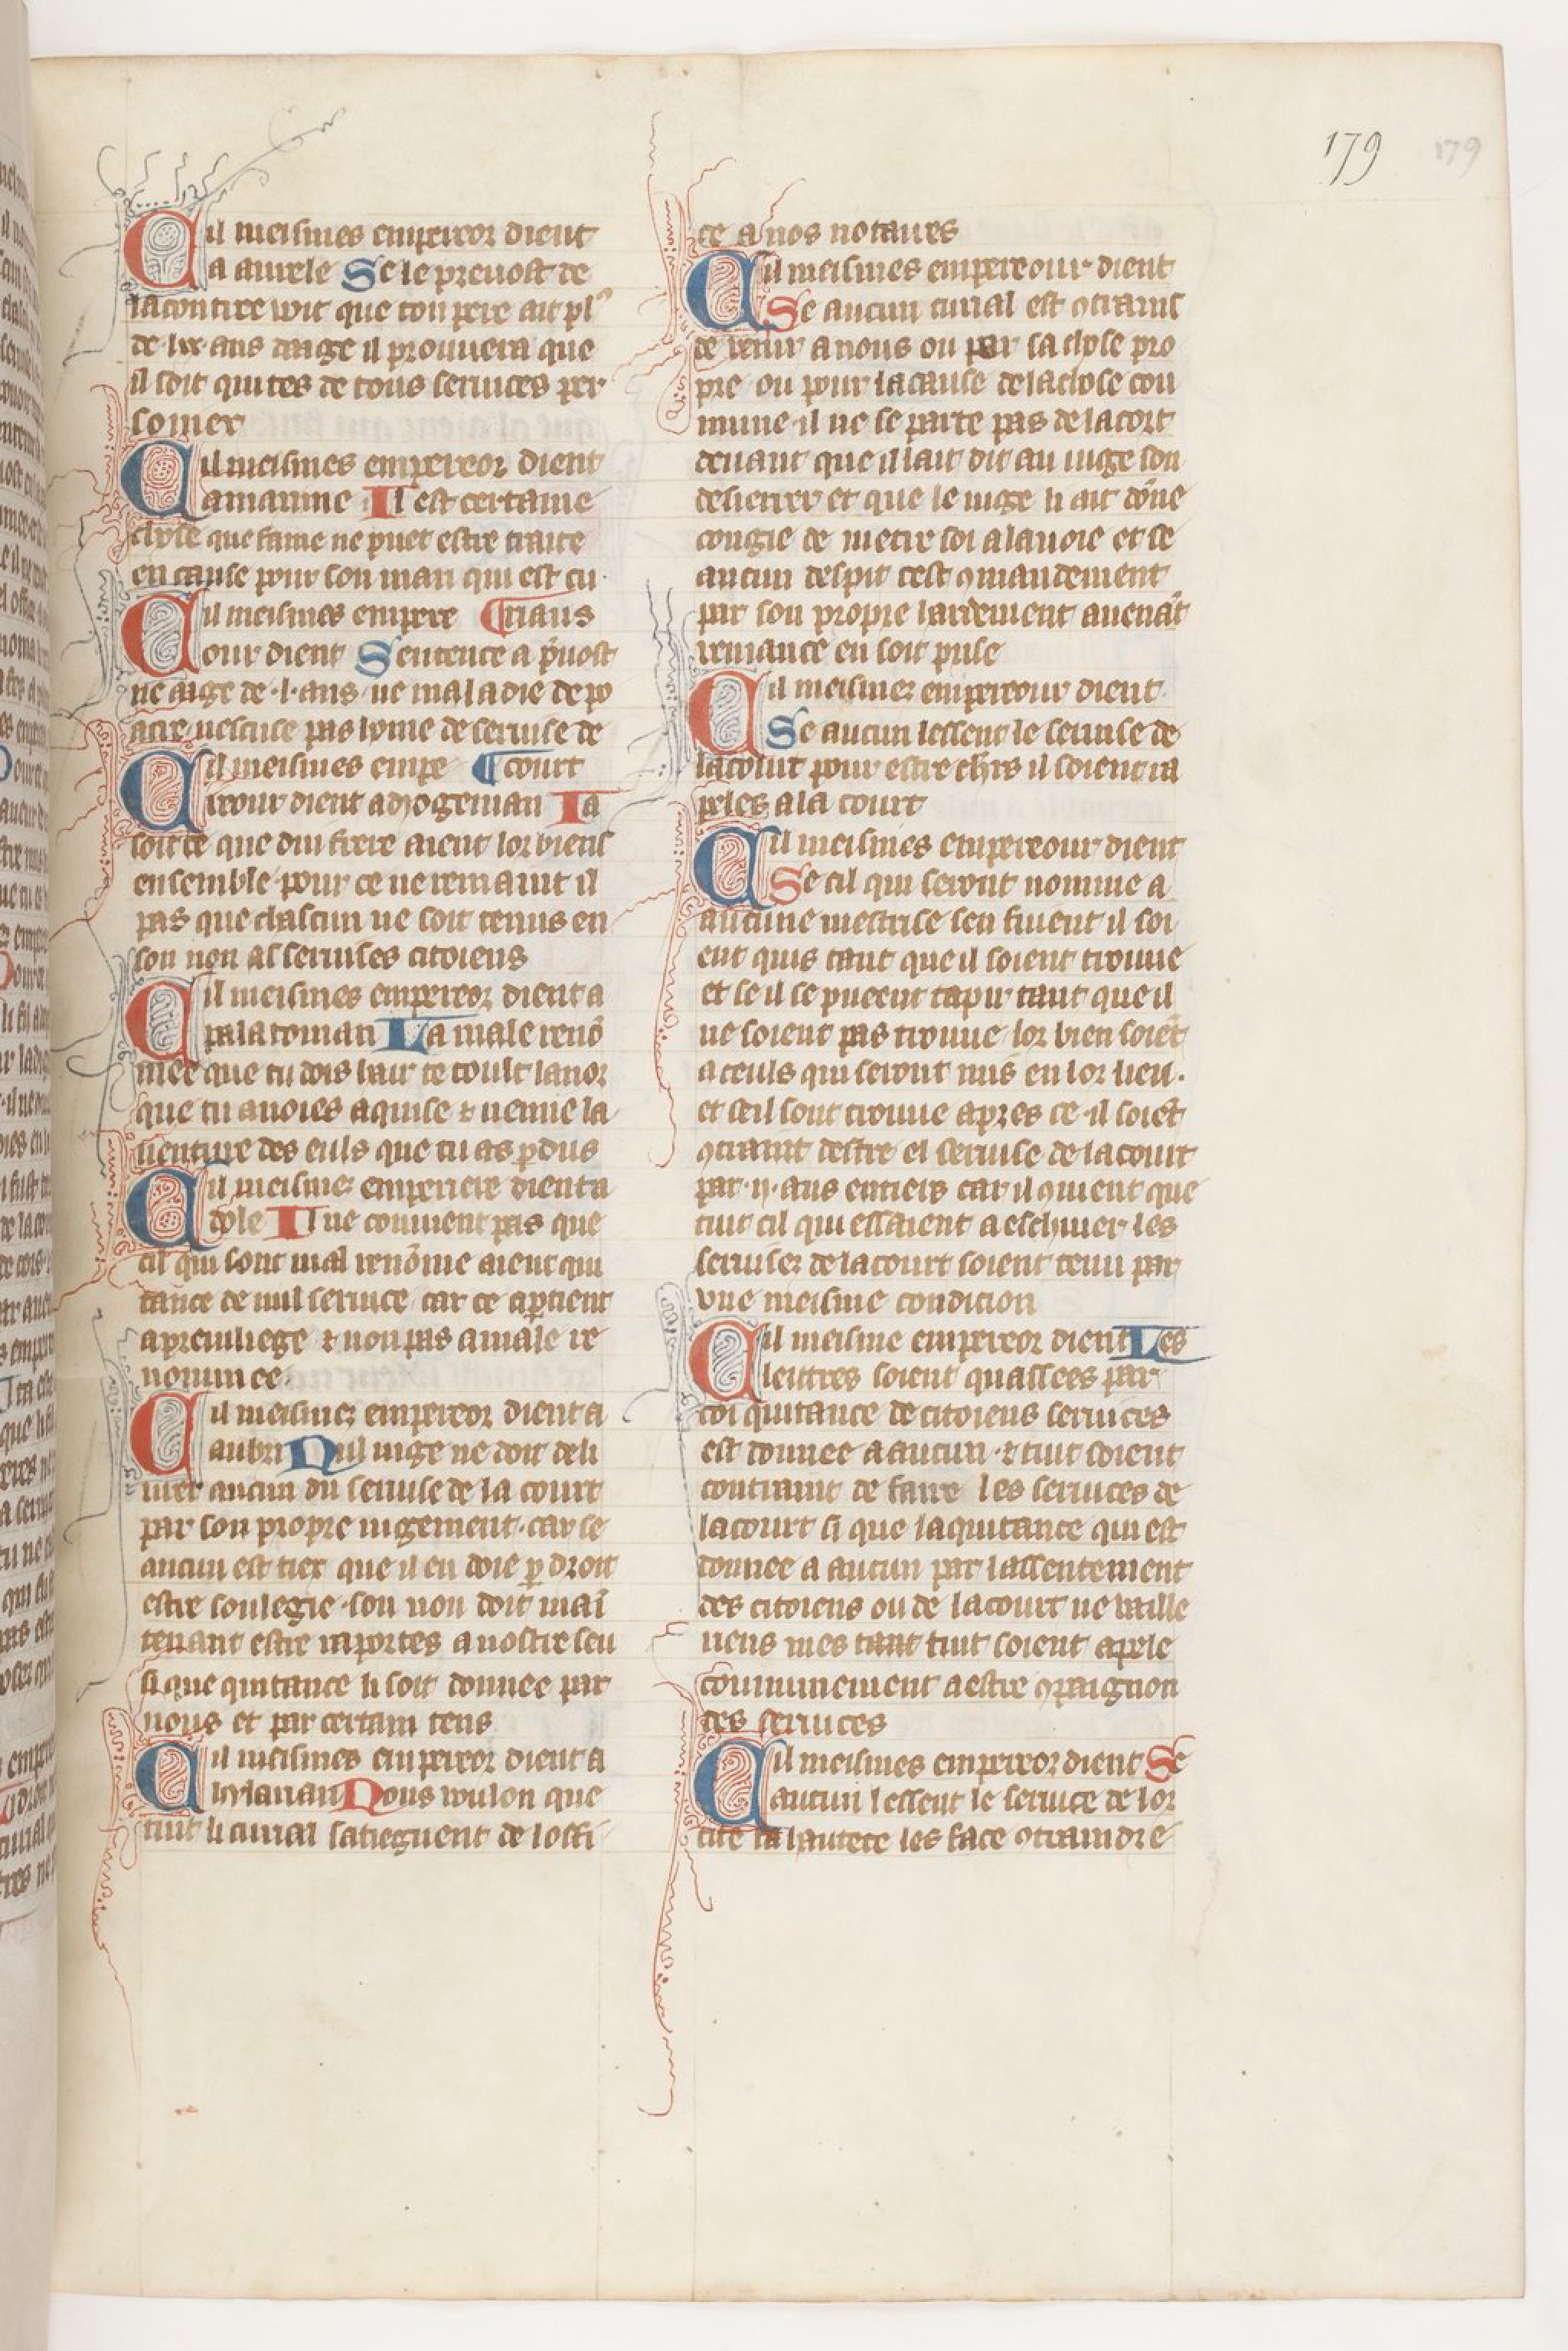 179 179
Cil meismes empereor dient
a aurele Se le preuost de
la contree voit que ton pere ait plꝰ
de lxx ans daage il prouuera que
il soit quites de tous seruices per
soner
Cil meismes empereor dient
a marime Il est certaine
chose que fame ne puet estre traite
en cause pour son mari qui est cu
Cil meismes empere ¶riaus
our dient Sentence a p̃uost
ne aage de .l. ans ne maladie de po
acre nescuse pas lome de seruise de
Cil meismes empe ¶court
reour dient a dyogenian Ia
soit ce que dui frere aient lor biens
ensemble pour ce ne remaint il
pas que chascun ne soit tenus en
son non as seruises citoiens
Cil meismes empereor dient a
palatoman La male renõ
mee que tu dois hair te toult lanor
que tu auoies aquise ⁊ nemie la
uenture des euls que tu as ꝑdus
Cil meismes emperiere dient a
dole Il ne conuient pas que
cil qui sont mal renõme aient qui
tance de nul seruice car ce aꝑtient
a preuiliege ⁊ non pas a male re
nommee
Cil meismes empereor dient a
aubri Nul iuge ne doit deli
urer aucun du seruise de la court
par son propre iugement . car se
aucun est tiex que il en doie ꝑ droit
estre soulegie . son non doit mai
tenant estre raportes a nostre seu
si que quitance li soit donnee par
nous et par certain tens
Cil meismes empereor dient a
hylarian Nous uoulon que
tuit li curial satieguent de loffi
ce a nos notaires
Cil meismes empereour dient
Se aucun curial est ꝯtrains
de venir a nous ou par sa chose pro
pre ou pour la cause de la chose cou
mune il ne se parte pas de la cort
deuant que il lait dit au iuge son
desierrer et que le iuge li ait dõne
congie de metre soi a la uoie et se
aucun despit cest ꝯmandement
par son propre hardement auenãt
ueniance en soit prise
Cil meismes empereour dient
Se aucun lessent le seruise de
la court pour estre clers il soient ra
peles a la court
Cil meismes empereour dient
Se cil qui seront nomme a
aucune mestrise sen fuient il soi
ent quis tant que il soient trouue
et se il se pueent tapir tant que il
ne soient pas trouue lor bien soiẽt
a ceuls qui seront mis en lor lieu .
et seil sont trouue apres ce il soiẽt
ꝯtraint destre el seruise de la court
par .ii. ans entiers car il ꝯuient que
tuit cil qui essaient a eschiuer les
seruises de la court soient tenu par
vne meisme condicion
Cil meisme empereor dient Les
lettres soient quassees par
coi quitance de citoiens seruices
est donnee a aucun . ⁊ tuit soient
contraint de faire les seruices de
la court si que la quitance qui est
donnee a aucun par lassentement
des citoiens ou de la court ne vaille
riens mes tant tuit soient apele
communement a estre ꝯpaignon
des seruices
Cil meismes empereor dient Se
aucun lessent le seruice de lor
cite ta hautece les face ꝯtraindre